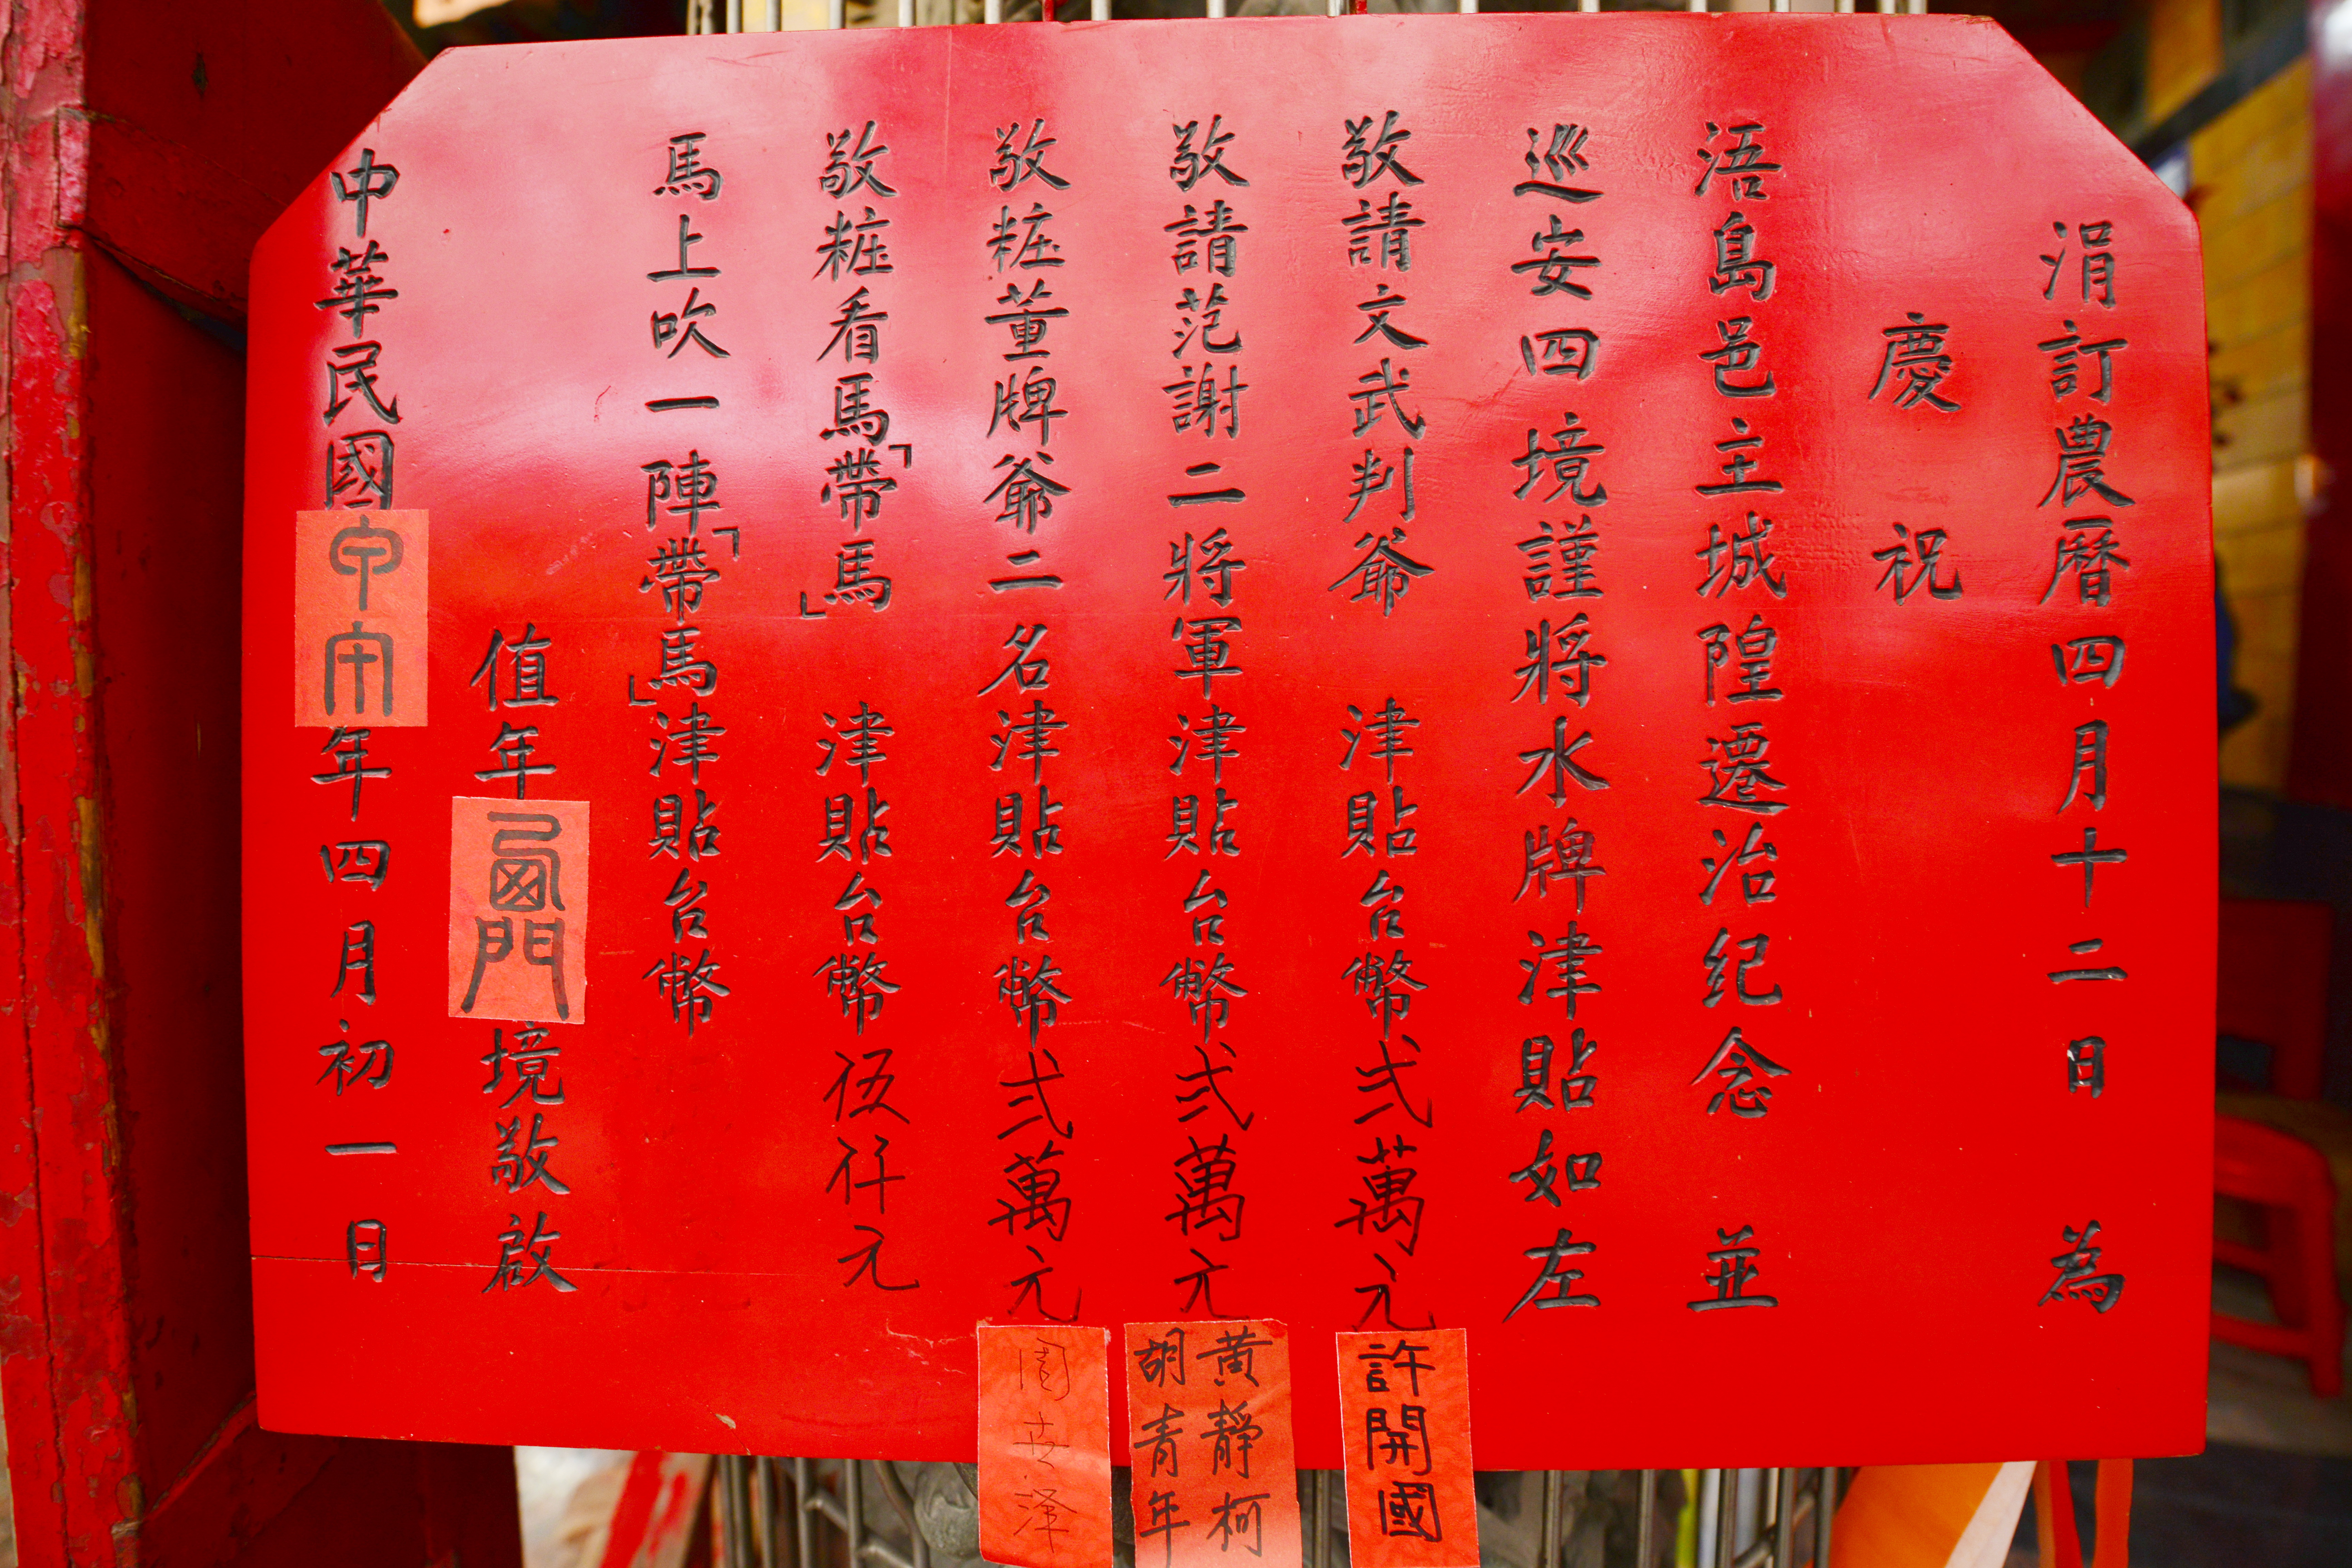 涓訂農曆四月十二日 為
慶祝
浯島邑主城隍遷治紀念 並
巡安四境謹將水牌津貼如左
敬請文武判爺 津貼台幣弍萬元 許開國
敬請范謝二將軍津貼台幣弍萬元 黃靜柯
胡青年
敬粧董牌爺二名津貼台幣弍萬元
敬粧看馬「帶馬」 津貼台幣伍仟元
馬上吹一陣「帶馬」津貼台幣
值年西門境敬啟
中華民國甲午年四月初一日